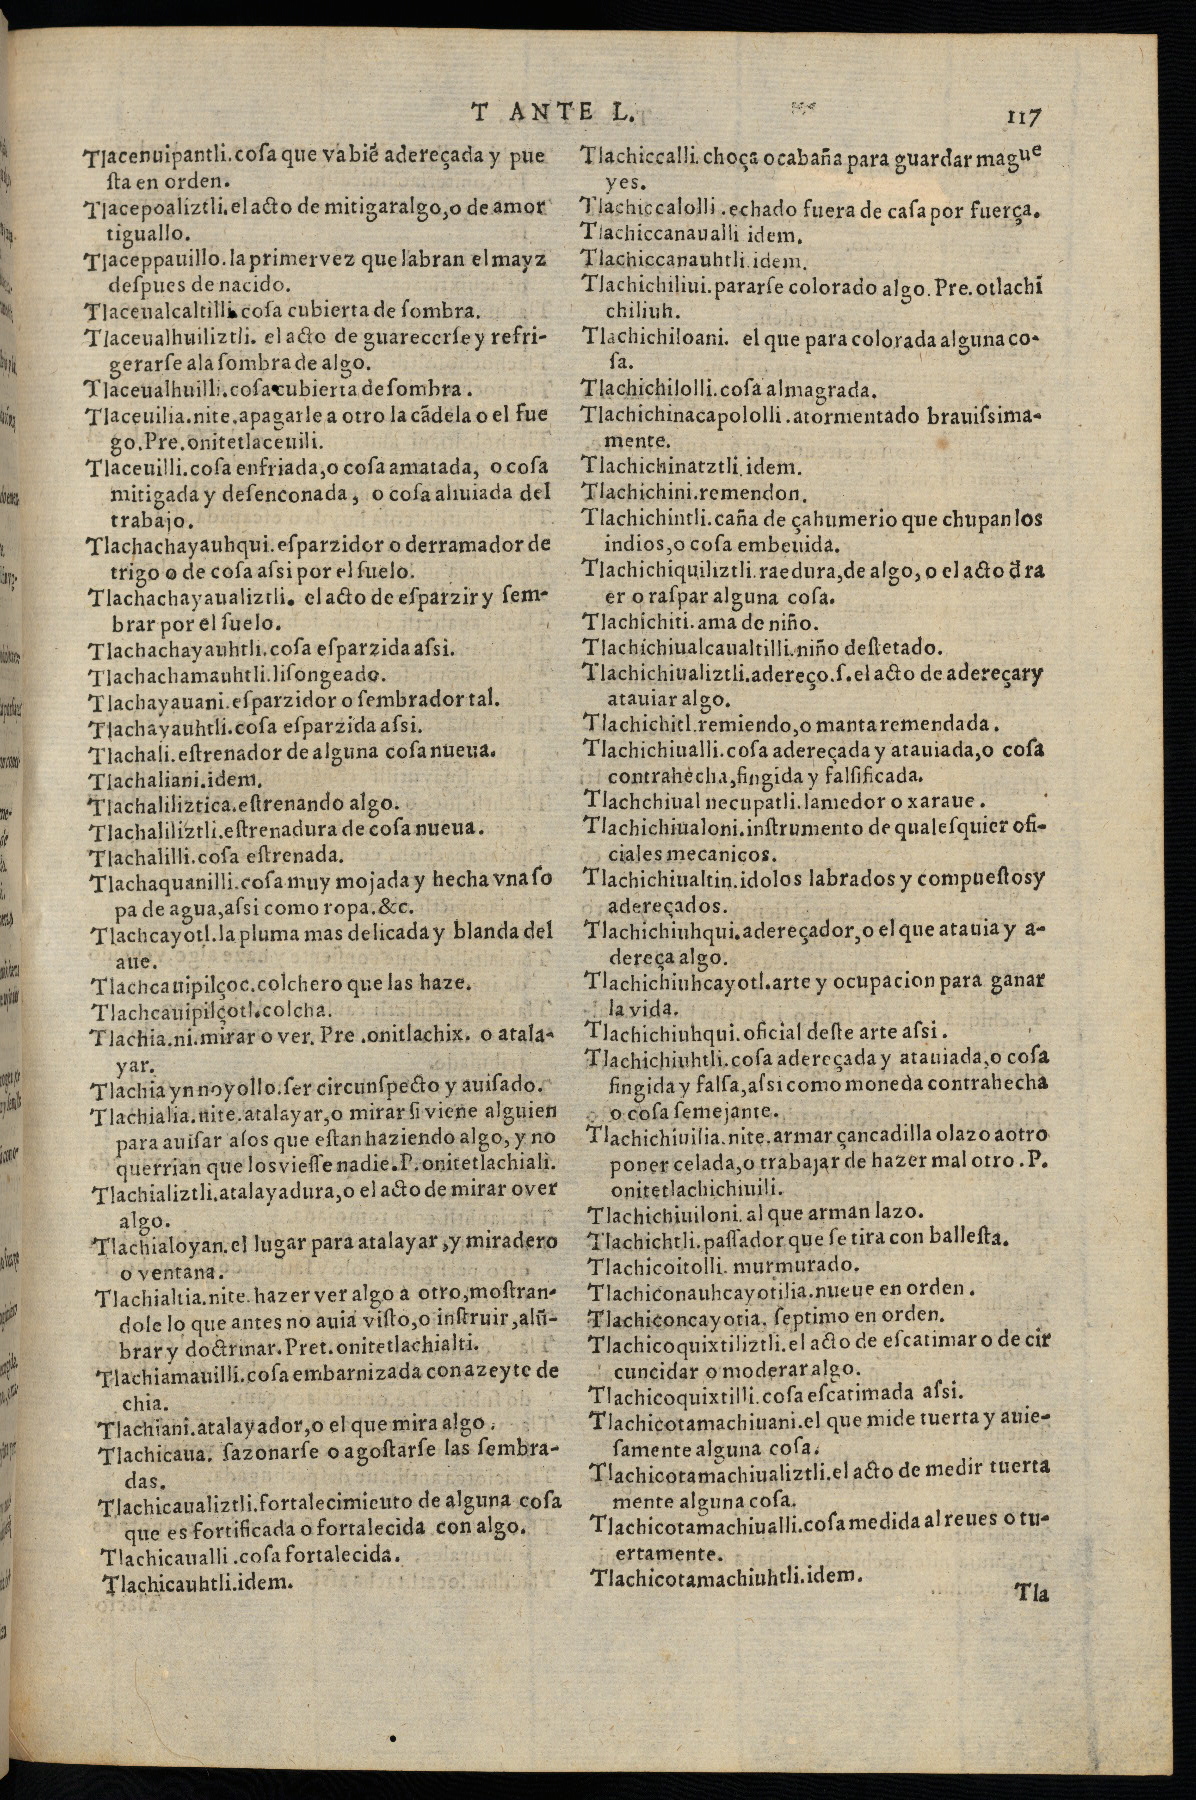 T ANTE L.
117
Tlacenuipantli.cosa que va biẽ adereçada y pue
sta en orden.
Tlacepoaliztli.el acto de mitigar algo,o de amor
tiguallo.
Tlaceppauillo.la primer vez que labran el mayz
despues de nacido.
Tlaceualcaltilli.cosa cubierta de sombra.
Tlaceualhuiliztli. el acto de guarecerse y refri-
gerarse ala sombra de algo.
Tlaceualhuilli.cosa cubierta de sombra.
Tlaceuilia.nite.apagarle a otro la cãdela o el fue
go.Pre.onitetlaceuili.
Tlaceuilli.cosa enfriada,o cosa amatada, o cosa
mitigada y desenconada, o cosa aliuiada del
trabajo.
Tlachachayauhqui.esparzidor o derramador de
trigo o de cosa assi por el suelo.
Tlachachayaualiztli. el acto de esparzir y sem-
brar por el suelo.
Tlachachayauhtli.cosa esparzida assi.
Tlachachamauhtli.lisongeado.
Tlachayauani.esparzidor o sembrador tal.
Tlachayauhtli.cosa esparzida assi.
Tlachali.estrenador de alguna cosa nueua.
Tlachaliani.idem.
Tlachaliliztica.estrenando algo.
Tlachaliliztli.estrenadura de cosa nueua.
Tlachalilli.cosa estrenada.
Tlachaquanilli.cosa muy mojada y hecha vna so
pa de agua,assi como ropa.&c.
Tlachcayotl.la pluma mas delicada y blanda del
aue.
Tlachcauipilçoc.colchero que las haze.
Tlachcauipilçotl.colcha.
Tlachia.ni.mirar o ver. Pre.onitlachix. o atala-
yar.
Tlachia yn noyollo.ser circunspecto y auisado.
Tlachialia.nite.atalayar,o mirar si viene alguien
para auisar alos que estan haziendo algo, y no
querrian que los viesse nadie.P.onitetlachiali.
Tlachializtli.atalayadura,o el acto de mirar o ver
algo.
Tlachialoyan.el lugar para atalayar,y miradero
o ventana.
Tlachialtia.nite.hazer ver algo a otro,mostran-
dole lo que antes no auia visto,o instruir,alũ-
brar y doctrinar.Pret.onitetlachialti.
Tlachiamauilli.cosa embarnizada con azeyte de
chia.
Tlachiani.atalayador,o el que mira algo.
Tlachicaua. sazonarse o agostarse las sembra-
das.
Tlachicaualiztli.fortalecimieuto de alguna cosa
que es fortificada o fortalecida con algo.
Tlachicaualli.cosa fortalecida.
Tlachicauhtli.idem.
Tlachiccalli.choça o cabaña para guardar mague
yes.
Tlachiccalolli.echado fuera de casa por fuerça.
Tlachiccanaualli idem.
Tlachiccanauhtli.idem.
Tlachichiliui.pararse colorado algo.Pre.otlachi
chiliuh.
Tlachichiloani. el que para colorada alguna co-
sa.
Tlachichilolli.cosa almagrada.
Tlachichinacapololli.atormentado brauissima-
mente.
Tlachichinatztli.idem.
Tlachichini.remendon.
Tlachichintli.caña de çahumerio que chupan los
indios,o cosa embeuida.
Tlachichiquiliztli.raedura,de algo, o el acto đ ra
er o raspar alguna cosa.
Tlachichiti.ama de niño.
Tlachichiualcaualtilli.niño destetado.
Tlachichiualiztli.adereço.s.el acto de adereçar y
atauiar algo.
Tlachichitl.remiendo,o manta remendada.
Tlachichiualli.cosa adereçada y atauiada,o cosa
contrahecha,fingida y falsificada.
Tlachchiual necupatli.lamedor o xaraue.
Tlachichiualoni.instrumento de qualesquier ofi-
ciales mecanicos.
Tlachichiualtin.idolos labrados y compuestos y
adereçados.
Tlachichiuhqui.adereçador,o el que atauia y a-
dereça algo.
Tlachichiuhcayotl.arte y ocupacion para ganar
la vida.
Tlachichiuhqui.oficial deste arte assi.
Tlachichiuhtli.cosa adereçada y atauiada,o cosa
fingida y falsa,assi como moneda contrahecha
o cosa semejante.
Tlachichiuilia.nite.armar çancadilla o lazo a otro
poner celada,o trabajar de hazer mal otro.P.
onitetlachichiuili.
Tlachichiuiloni.al que arman lazo.
Tlachichtli.passador que se tira con ballesta.
Tlachicoitolli. murmurado.
Tlachiconauhcayotilia.nueue en orden.
Tlachiconcayotia. septimo en orden.
Tlachicoquixtiliztli.el acto de escatimar o de cir
cuncidar o moderar algo.
Tlachicoquixtilli.cosa escatimada assi.
Tlachicotamachiuani.el que mide tuerta y auie-
samente alguna cosa.
Tlachicotamachiualiztli.el acto de medir tuerta
mente alguna cosa.
Tlachicotamachiualli.cosa medida al reues o tu-
ertamente.
Tlachicotamachiuhtli.idem.
Tla